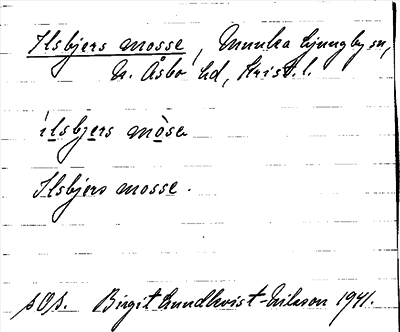 Ilsbjers mosse, Munka Ljungby sn,
N. Åsbo hd, Krist. l.
ilsbjers mòsa
Ilsbjers mosse.
Birgit Lundkvist-Nilsson 1941.